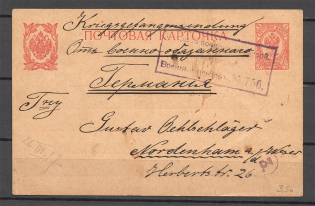 Kriegsgefangenensendung
ПОЧТОВАЯ КАРТОЧКА
Отъ военно-обязаннаго
Военн. № 756.
Германия
Гну
Gustav Oehlschläger
Nordenham a/Weser
Herbertstr. 26